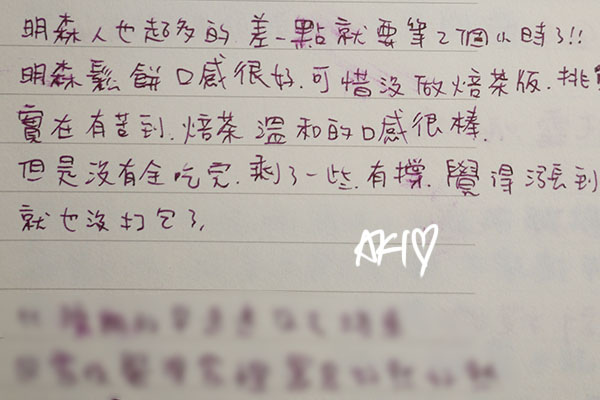 明森人也超多的差一點就要等2個小時了!!
明森鬆餅口感很好.可惜沒做焙茶版.挑
實在有苦到.焙茶溫和的口感很棒.
但是沒有全吃完.剩了一些.有撐.覺得漲到
就也沒打包了.
AKI♡